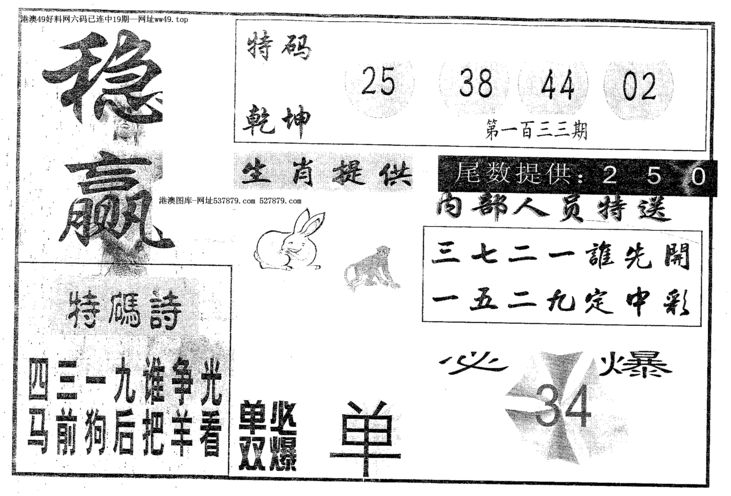 港澳49好料网六码已连中19期—网址ww49.top
稳赢
特码乾坤
25 38 44 02
第一百三三期
生肖提供
尾数提供：2 5 0
港澳图库-网址537879.com 527879.com
内部人员特送
三七二一誰先開
一五二九定中彩
特碼詩
四三一九谁争光
马前狗后把羊看
单双必爆
单
必爆
34